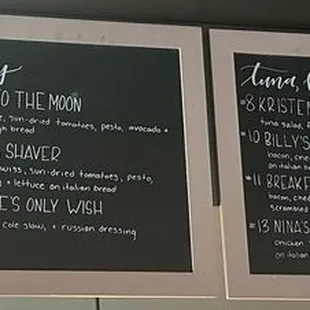 TO THE MOON
sun-dried tomatoes, pesto, avocado +
bread
SHAVER
swiss, sun-dried tomatoes, pesto,
+ lettuce on italian bread
E'S ONLY WISH
cole slaw, + russian dressing
tuna,
#8 KRISTEN
tuna salad,
#10 BILLY'S
bacon, chee
on italian
#11 BREAKF
bacon, chee
scrambled
#13 NINA'S
chicken
on italian